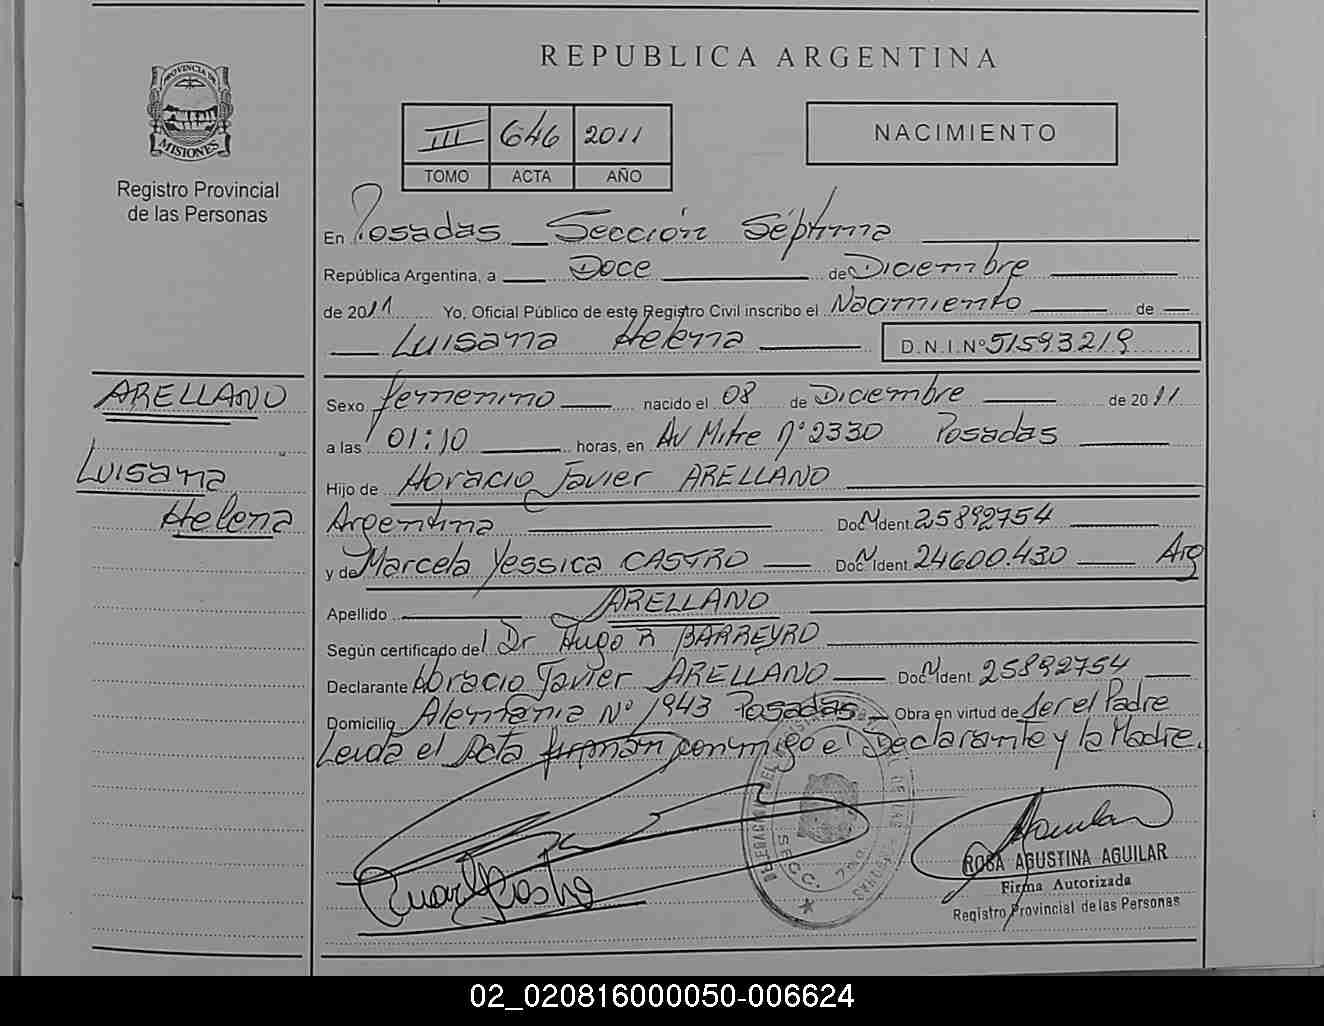 REPUBLICA ARGENTINA
PROVINCIA DE
MISIONES
Registro Provincial
de las Personas
III 646 2011
TOMO ACTA AÑO
NACIMIENTO
En Posadas Sección Séptima
República Argentina, a Doce de Diciembre
de 2011 Yo, Oficial Público de este Registro Civil inscribo el Nacimiento de
Luisana Helena D.N.I.Nº 51593219
ARELLANO
Luisana
Helena
Sexo femenino nacido el 08 de Diciembre de 2011
a las 01:10 horas, en Av Mitre n° 2330 Posadas
Hijo de Horacio Javier ARELLANO
Argentina Doc N Ident. 25892754
y de Marcela Yessica CASTRO Doc N Ident. 24600.430 Arg
Apellido ARELLANO
Según certificado del Dr Hugo R BARREYRO
Declarante Horacio Javier ARELLANO Doc N Ident. 25892754
Domicilio Alemania Nº 1943 Posadas Obra en virtud de ser el Padre
Leida el Acta firman conmigo el Declarante y la Madre.
DELEGACION DEL
SECC. 7ma
ROSA AGUSTINA AGUILAR
Firma Autorizada
Registro Provincial de las Personas
02_020816000050-006624